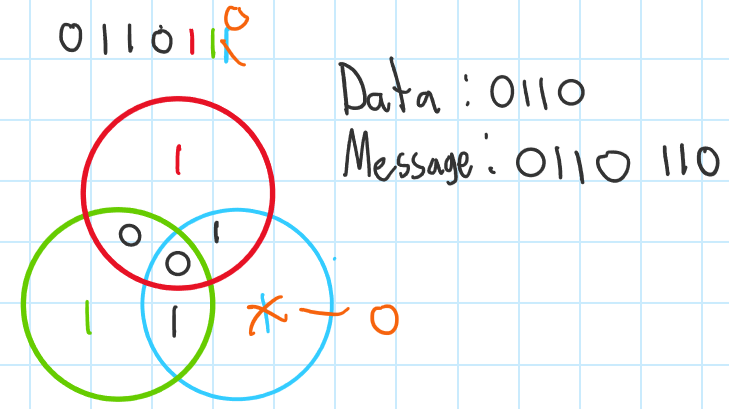 0110111 0
Data: 0110
Message: 0110 110
1
0 1
0
1 1 1 0